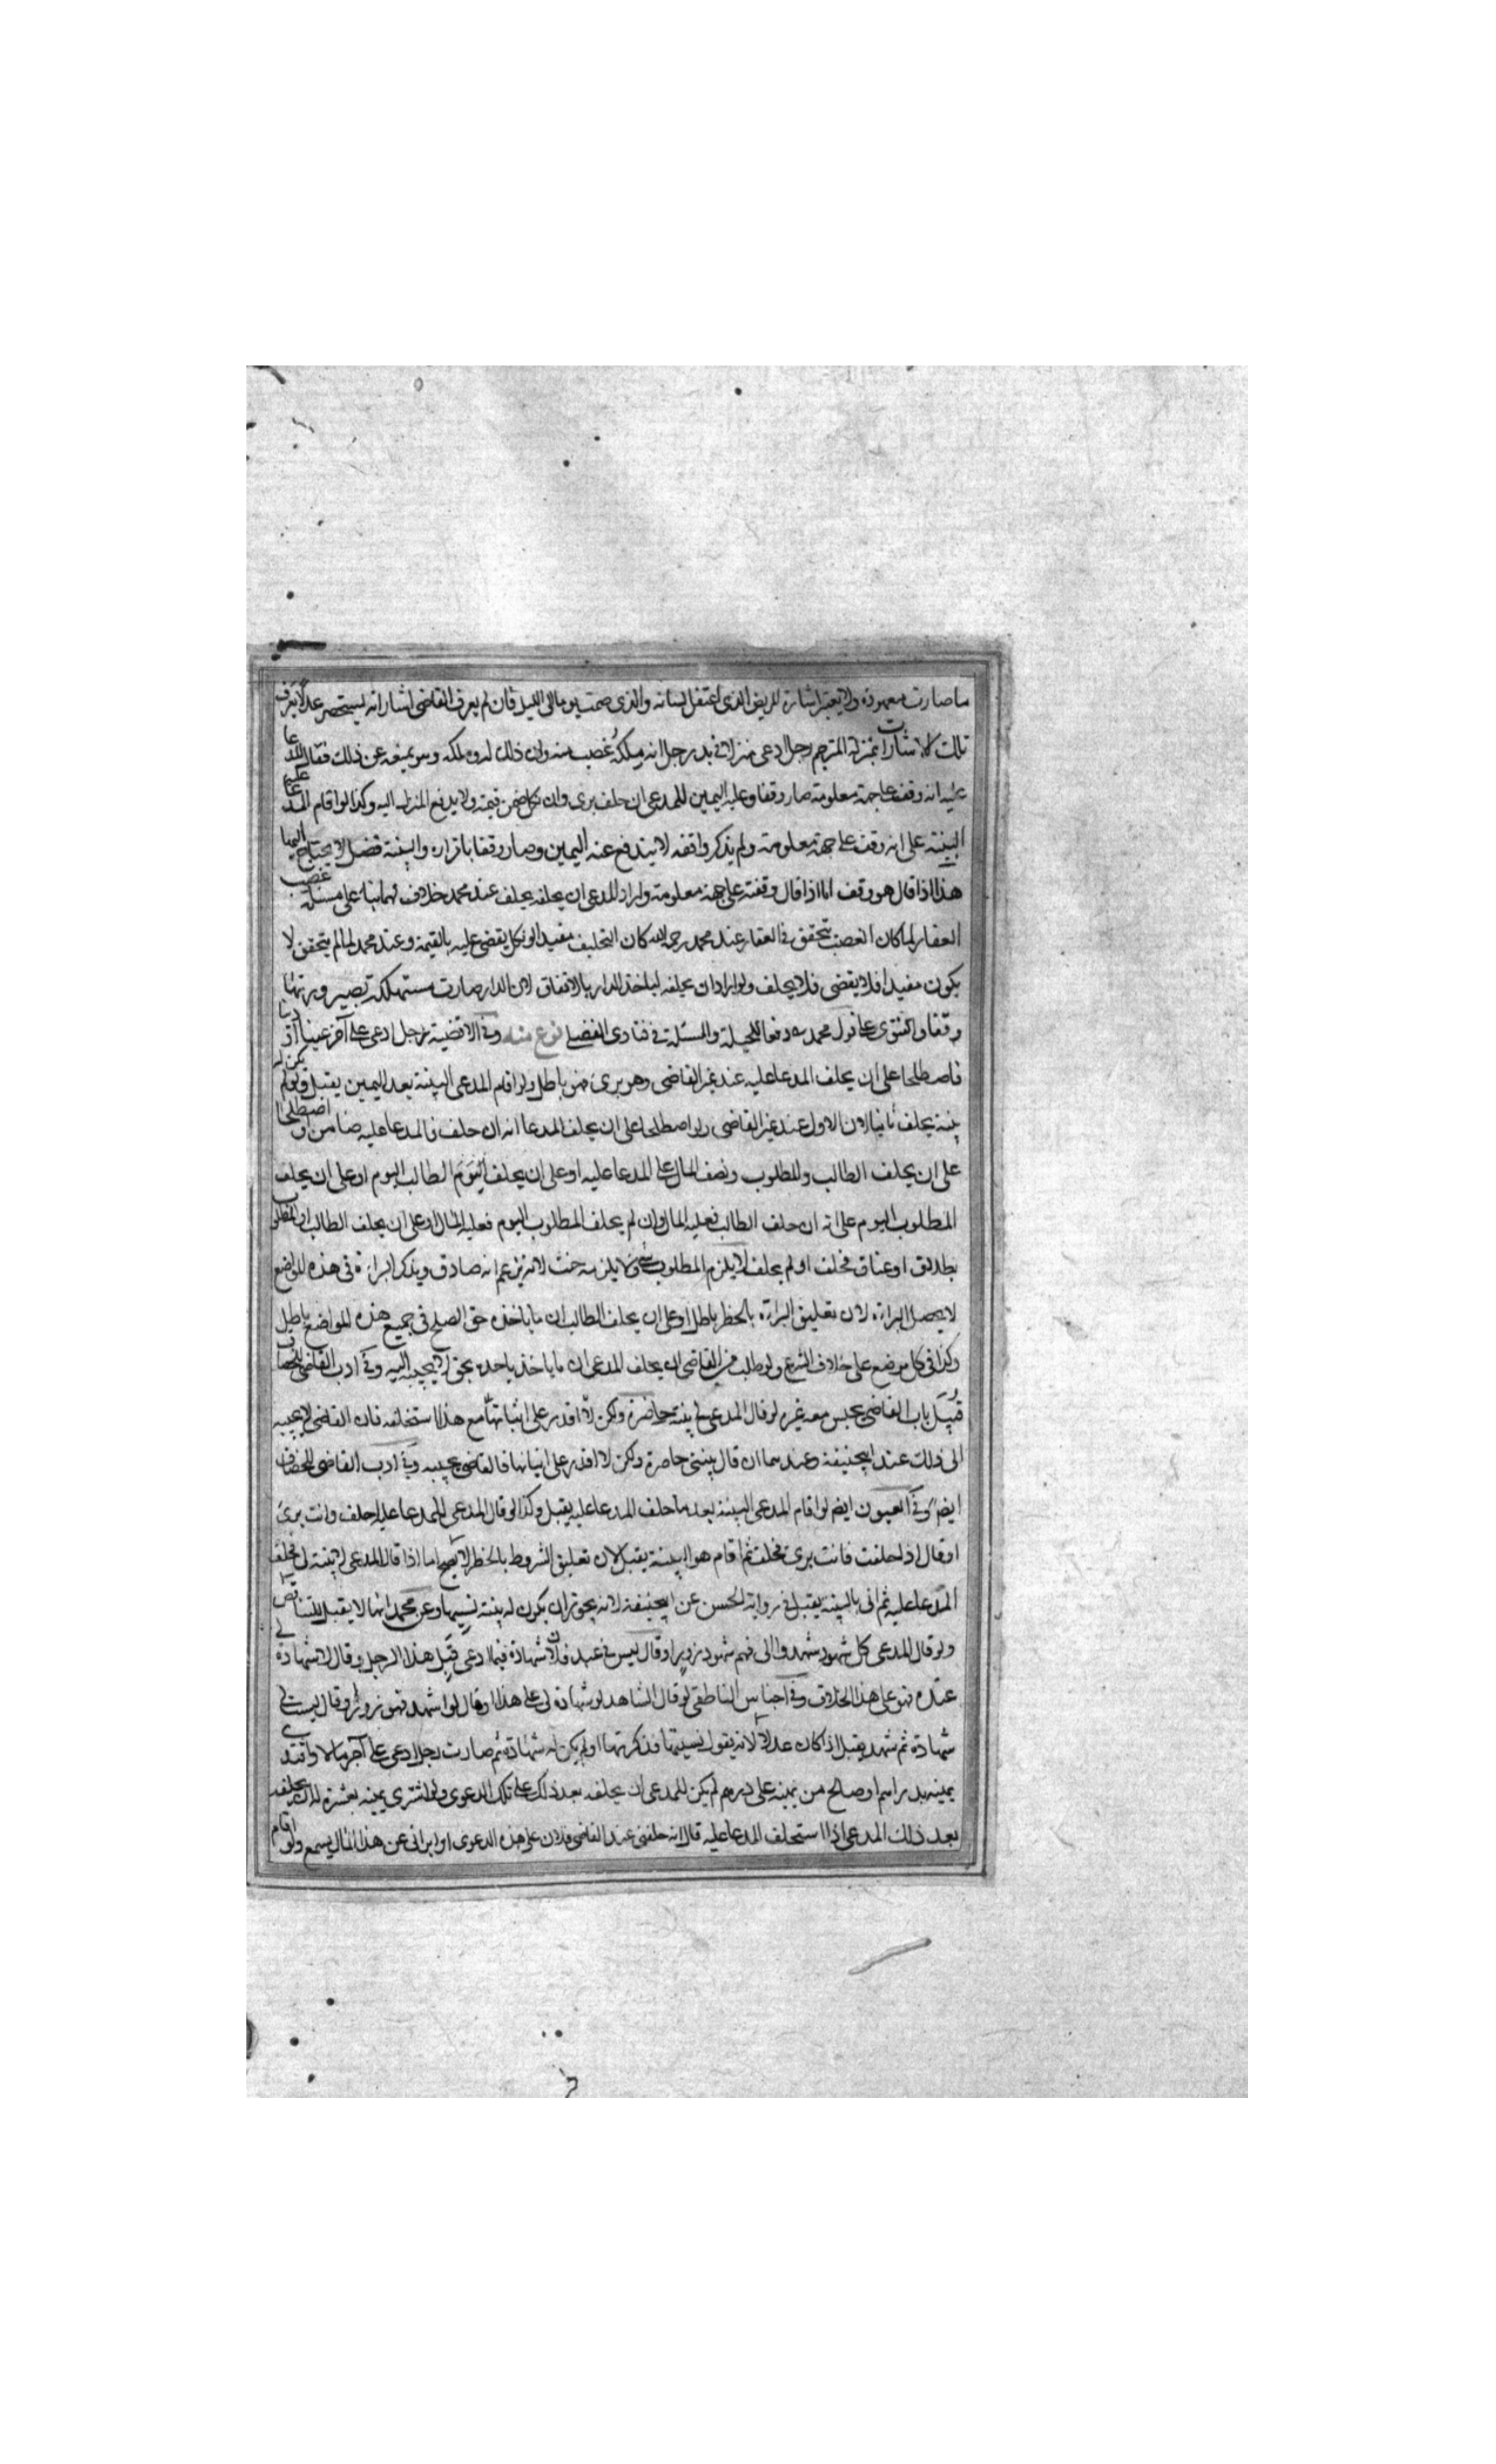 ما صارت معهودة ولا يعتبر اشارة المريض الذى اعتقل لسانه والذى صمت يوما الى الليل فان لم يعرف القاضى اشاراته يستحضر عدلا يعرف
تلك الاشارات بمنزلة المترجم رجل ادعى منزلا فى يد رجل انه ملكه غصب منه وان ذلك له وملكه وهو يمنعه عن ذلك فقال المدعا
عليه انه وقف على جهة معلومة صار وقفا وعليه اليمين للمدعى ان حلف برى وان نكل ضمن قيمته ولا يدفع المنزل اليه وكذا لو اقام المدعا عليه
البينة على انه وقف على جهة معلومة ولم يذكر واقفه لا يندفع عنه اليمين وصار وقفا باقراره والبينة فضل لا يحتاج اليها
هذا اذا قال هو وقف اما اذا قال وقفته على جهة معلومة واراد المدعى ان يحلفه يحلف عند محمد خلافا لهما بناء على مسئلة غصب
العقار لما كان الغصب يتحقق فى العقار عند محمد رحمه الله كان التحليف مفيدا لو نكل يقضى عليه بالقيمة وعند محمد لما لم يتحقق لا
يكون مفيدا فلا يقضى فلا يحلف ولو اراد ان يحلفه لياخذ الدار بالاتفاق لان الدار صارت مستهلكة تصير ورتها
وقفا والفتوى على قول محمد دفعا للحيلة والمسئلة فى فتاوى الفضلى نوع منه وفى الاقضية رجل ادعى على آخر عينا او دينا
فاصطلحا على ان يحلف المدعا عليه عند غير القاضى وهو برى فهو باطل ولو اقام المدعى البينة بعد اليمين يقبل ولو لم يكن له
بينة يحلف ثانيا لان الاول عند غير القاضى ولو اصطلحا على ان يحلف المدعا انه ان حلف فالمدعا عليه ضامن او اصطلحا
على ان يحلف الطالب والمطلوب ونصف المال على المدعا عليه او على ان يحلف اليوم الطالب اليوم او على ان يحلف
المطلوب اليوم على انه ان حلف الطالب فعليه المال وان لم يحلف المطلوب اليوم فعليه المال او على ان يحلف الطالب او المطلوب
بطلاق او عتاق فحلف او لم يحلف لا يلزم المطلوب شئ ولا يلزمه حنث لانه يزعم انه صادق ويذكر البراءة فى هذه المواضع
لا يحصل البراءة لان تعليق البراءة بالخطر باطل او على ان يحلف الطالب ان ما ياخذه حق الصلح فى جميع هذه المواضع باطل
وكذا فى كل موضع على خلاف الشرع ولو طلب من القاضى ان يحلف المدعى ان ما ياخذ ياخذه بحق لا يجيبه اليه وفى ادب القاضى للخصاف
قبيل باب القاضى يحبس معه غيره لو قال المدعى لى بينة حاضرة ولكن لا اقدر على اثباتها مع هذا استحلفه فان القاضى لا يجيبه
الى ذلك عند ابيحنيفة وعندهما ان قال بينتى حاضرة ولكن لا اقدر على اتيانها فالقاضى يجيبه وفى ادب القاضى للخصاف
ايضا وفى العيون ايضا لو اقام المدعى البينة بعد ما حلف المدعا عليه يقبل وكذا لو قال المدعى للمدعا عليه احلف وانت برى
او قال اذا حلفت فانت برى فحلف ثم اقام هو البينة يقبل لان تعليق الشروط بالخطر لا يصح اما اذا قال المدعى لا بينة لى فحلف
المدعا عليه ثم اتى بالبينة يقبل فى رواية الحسن عن ابيحنيفة لانه يجوز ان يكون له بينة نسيها وعن محمد انها لا يقبل للتناقض
ولو قال المدعى كل شهود شهدوا لى فهم شهود زور او قال ليس لى عند فلان شهادة فيما ادعى قبل هذا الرجل وقال لا شهادة لى
عنده فهو على هذا الخلاف وفى اجناس الناطفى لو قال الشاهد لا شهادة لى على هذا او قال لو اشهد فهو زور او قال ليست لى
شهادة ثم شهد يقبل اذا كان عدلا لانه يقول نسيتها فذكرتها او لم يكن له شهادة ثم صارت رجل ادعى على آخر مالا وافتدى
يمينه بدراهم او صالح من يمينه على دراهم لم يكن للمدعى ان يحلفه بعد ذلك على تلك الدعوى ولو اشترى يمينه بعشرة له ان يحلفه
بعد ذلك المدعى اذا استحلف المدعا عليه قال انه حلفنى عند القاضى فلان على هذه الدعوى او ابرانى عن هذا المال يسمع ولو اقام